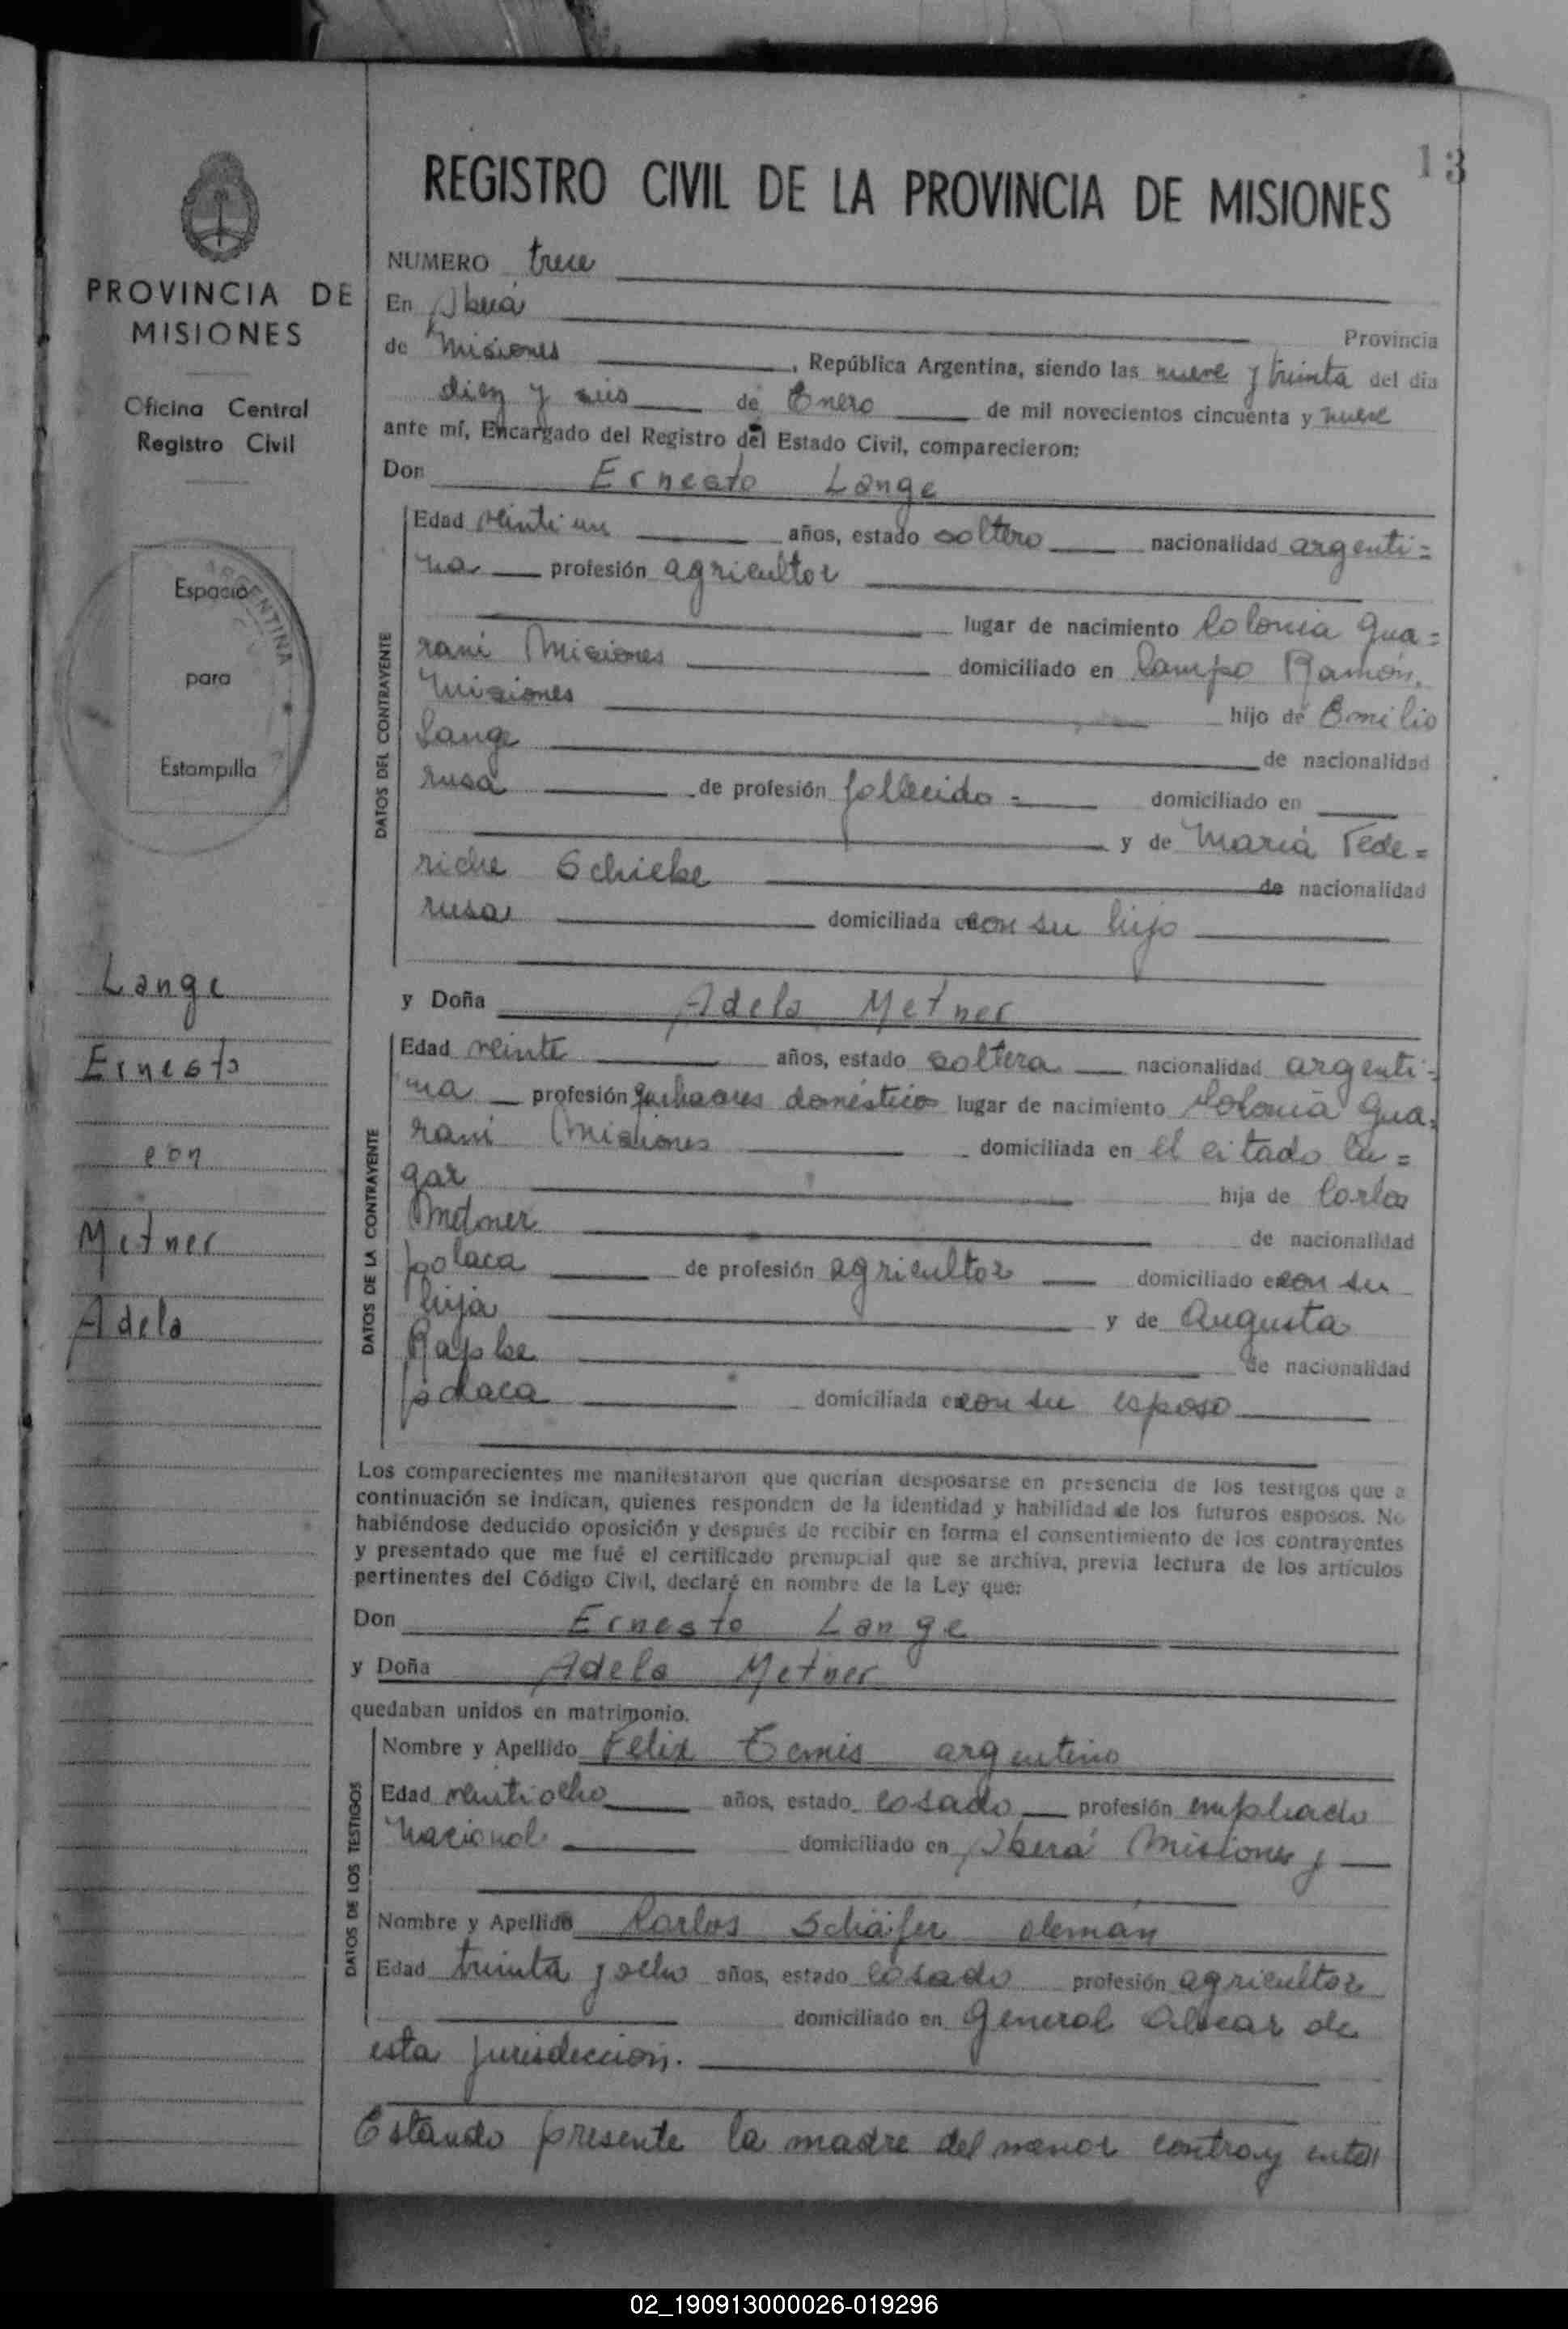 13
REGISTRO CIVIL DE LA PROVINCIA DE MISIONES
PROVINCIA DE
MISIONES
Oficina Central
Registro Civil
ARGENTINA
Espacio
para
Estampilla
Lange
Ernesto
con
Metner
Adela
NUMERO trece
En Iberá
Provincia
de Misiones , República Argentina, siendo las nueve y treinta del día
diez y seis de Enero de mil novecientos cincuenta y nueve
ante mí, Encargado del Registro del Estado Civil, comparecieron:
Don Ernesto Lange
DATOS DEL CONTRAYENTE
Edad veintiun años, estado soltero nacionalidad argenti=
na profesión agricultor
lugar de nacimiento Colonia Gua=
raní Misiones domiciliado en Campo Ramón,
Misiones hijo de Emilio
Lange de nacionalidad
rusa de profesión fallecido = domiciliado en
y de María Fede=
riche Schielke de nacionalidad
rusa domiciliada con su hijo
y Doña Adela Metner
DATOS DE LA CONTRAYENTE
Edad veinte años, estado soltera nacionalidad argenti=
na profesión quehaceres doméstico lugar de nacimiento Colonia Gua=
raní Misiones domiciliada en el citado lu=
gar hija de Carlos
Metner de nacionalidad
polaca de profesión agricultor domiciliado con su
hija y de Augusta
de nacionalidad
polaca domiciliada con su esposo
Los comparecientes me manifestaron que querían desposarse en presencia de los testigos que a
continuación se indican, quienes responden de la identidad y habilidad de los futuros esposos. No
habiéndose deducido oposición y después de recibir en forma el consentimiento de los contrayentes
y presentado que me fué el certificado prenupcial que se archiva, previa lectura de los artículos
pertinentes del Código Civil, declaré en nombre de la Ley que:
Don Ernesto Lange
y Doña Adela Metner
quedaban unidos en matrimonio.
DATOS DE LOS TESTIGOS
Nombre y Apellido Felix argentino
Edad veintiocho años, estado casado profesión empleado
Nacional domiciliado en Iberá Misiones y
Nombre y Apellido Carlos Schäfer alemán
Edad treinta y ocho años, estado casado profesión agricultor
domiciliado en General Alvear de
esta jurisdección.
Estando presente la madre del menor contrayente//
02_190913000026-019296